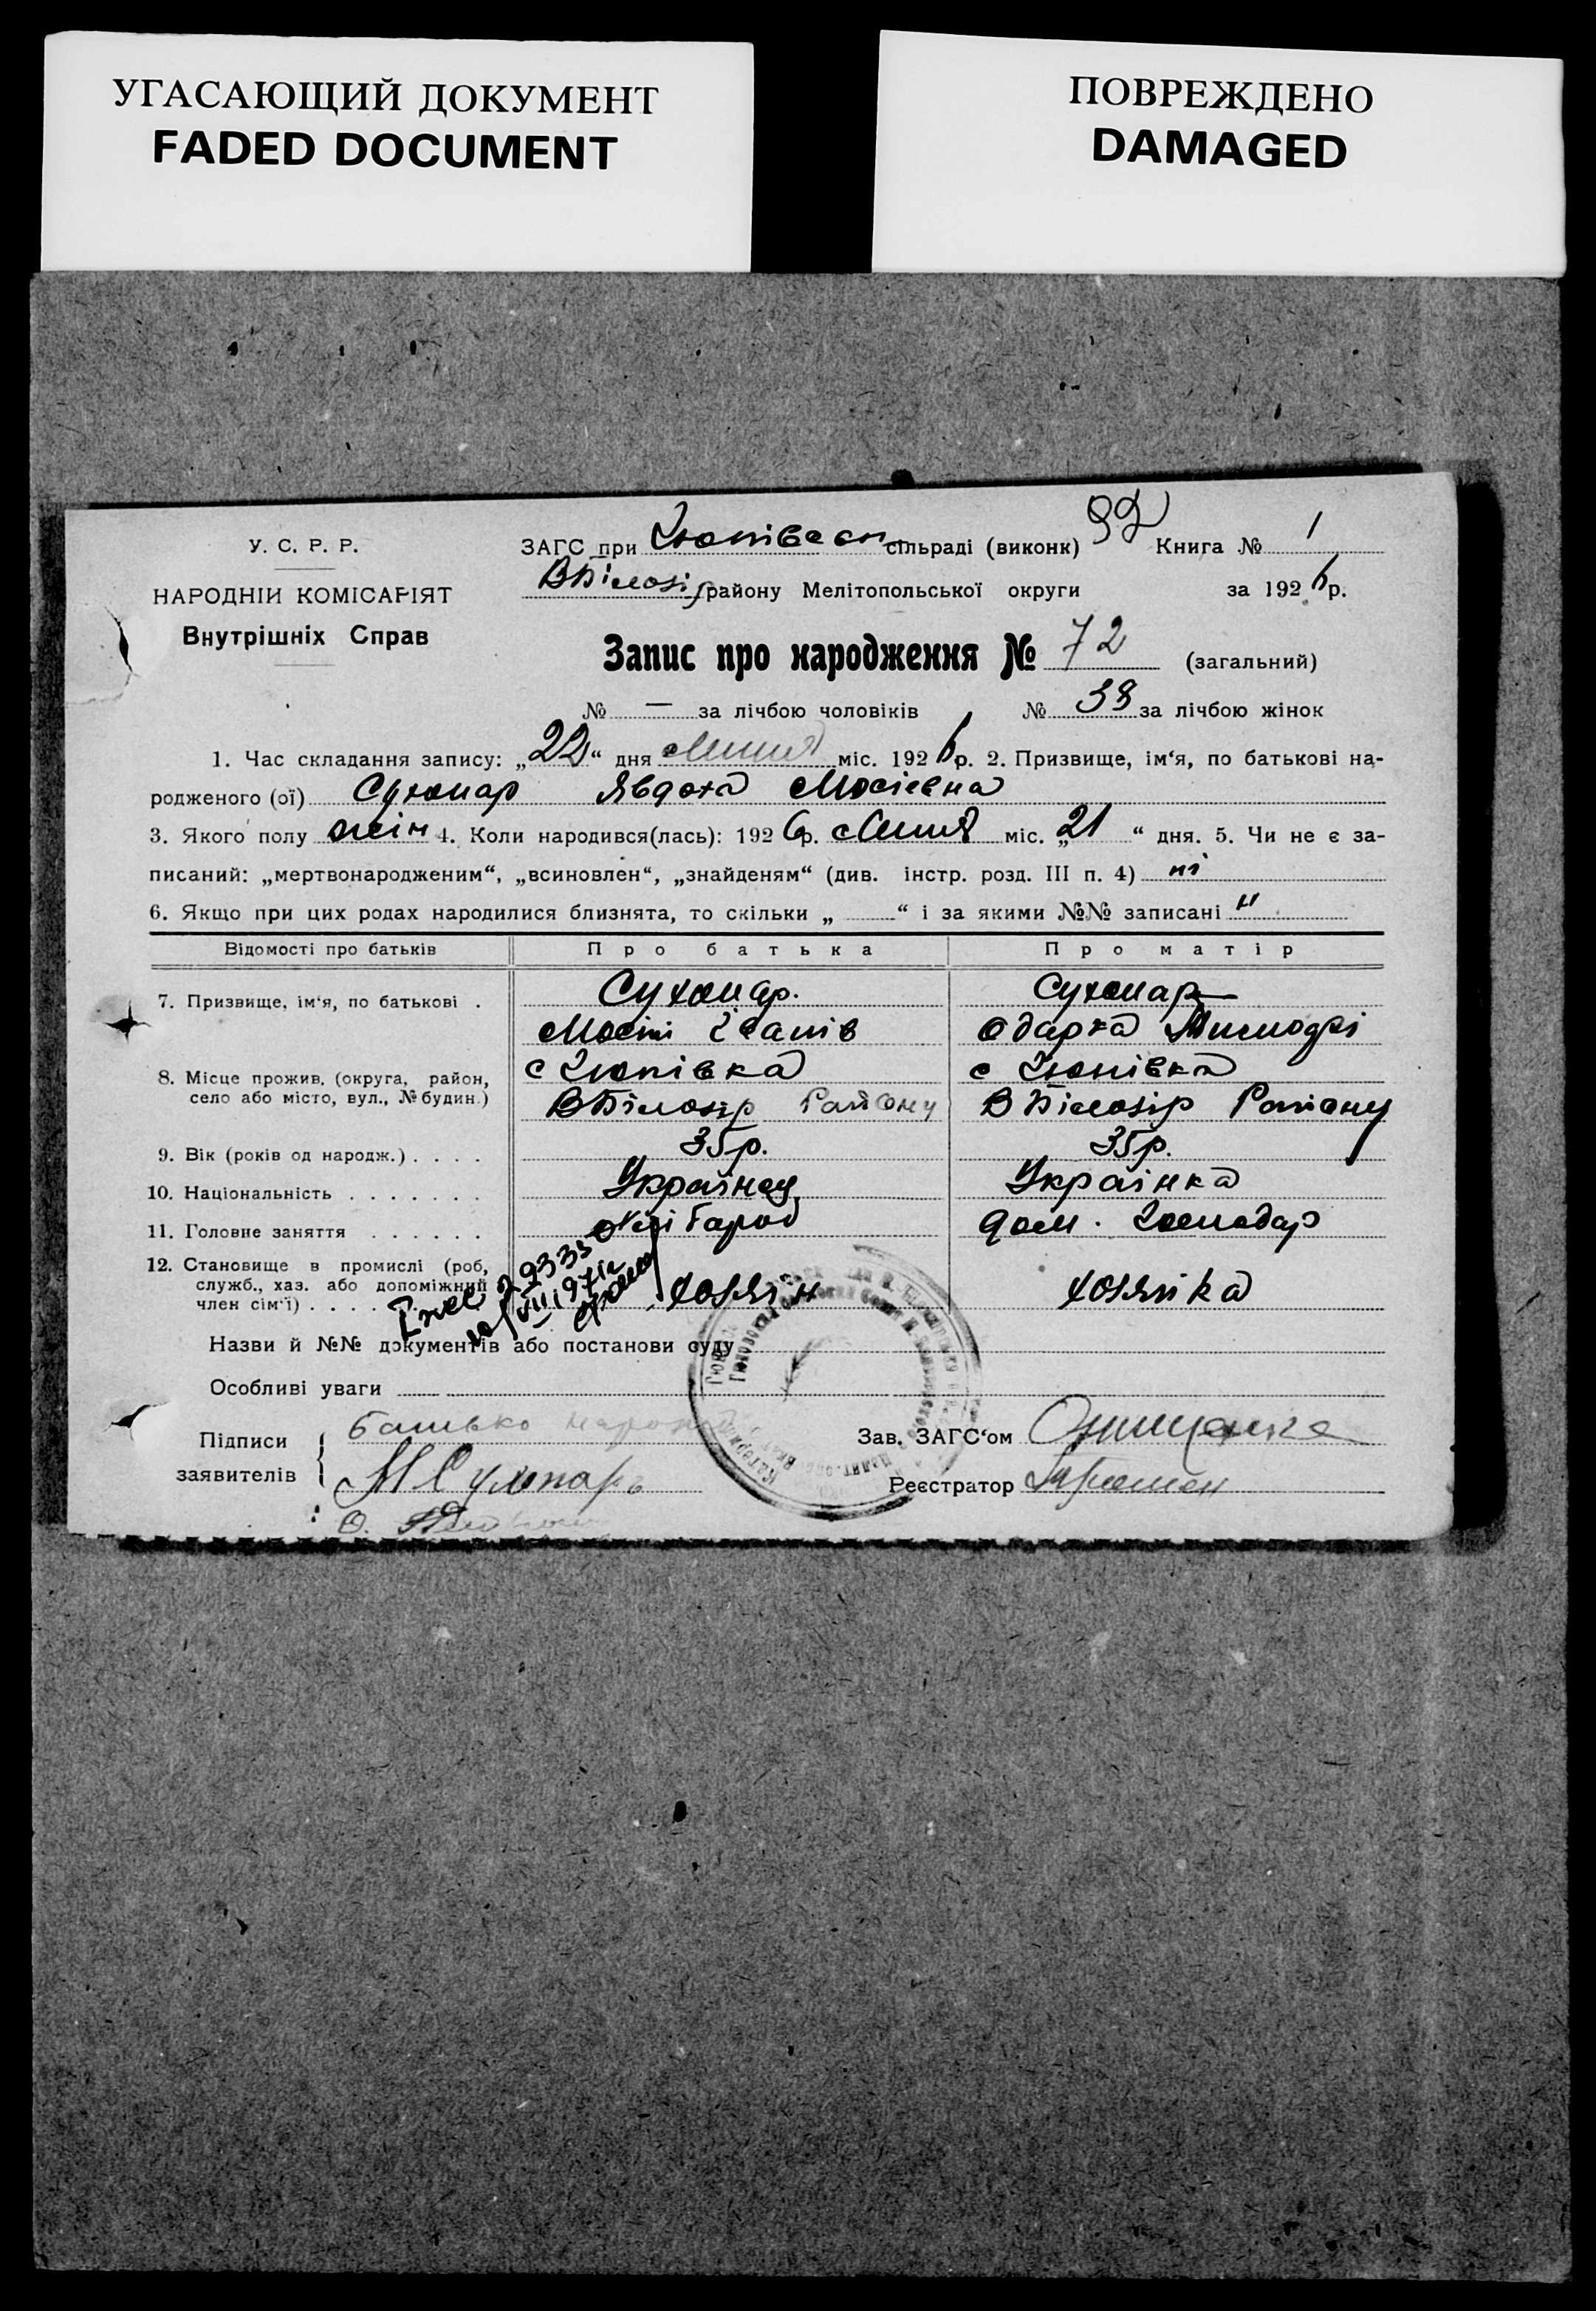 УГАСАЮЩИЙ ДОКУМЕНТ
FADED DOCUMENT
ПОВРЕЖДЕНО
DAMAGED
У. С. Р. Р.
НАРОДНІЙ КОМІСАРІЯТ
Внутрішніх Справ
ЗАГС при сільраді (виконк) 92 Книга № 1
ВБілозір району Мелітопольської округи за 1926 р.
Запис про народження № 72 (загальний)
№ — за лічбою чоловіків № 38 за лічбою жінок
1. Час складання запису: „22“ дня Липня міс. 1926 р. 2. Призвище, ім‘я, по батькові на-
родженого (ої) Сухонар Явдоха Мосіевна
3. Якого полу жін 4. Коли народився(лась): 1926 р. Липня міс. „21“ дня. 5. Чи не є за-
писаний: „мертвонародженим“, „всиновлен“, „знайденям“ (див. інстр. розд. III п. 4) ні
6. Якщо при цих родах народилися близнята, то скільки „ “ і за якими №№ записані "
Відомості про батьків Про батька Про матір
7. Призвище, ім‘я, по батькові . Сухонар. Сухонар
Одарка
8. Місце прожив, (округа, район, с Тюпівка с Тюпівка
село або місто, вул., № будин.) ВБілозір Району ВБілозір Району
9. Вік (років од народж.) . . . . 35р. 35р.
10. Національність . . . . . . . Українец Українка
11. Головне заняття . . . . . . Хлібароб дом. Господар
12. Становище в промислі (роб,
служб., хаз. або допоміжний хозяін хозяіка
член сім‘ї) . . . .
Назви й №№ документів або постанови суду
Особливі уваги
Підписи заявителів батько
Зав. ЗАГС‘ом Онищенко
Реєстратор